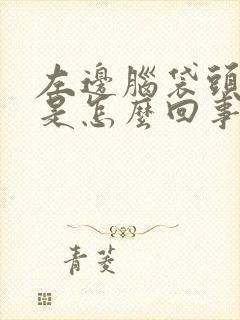 左邊腦袋頭
是怎麼回事
青菱